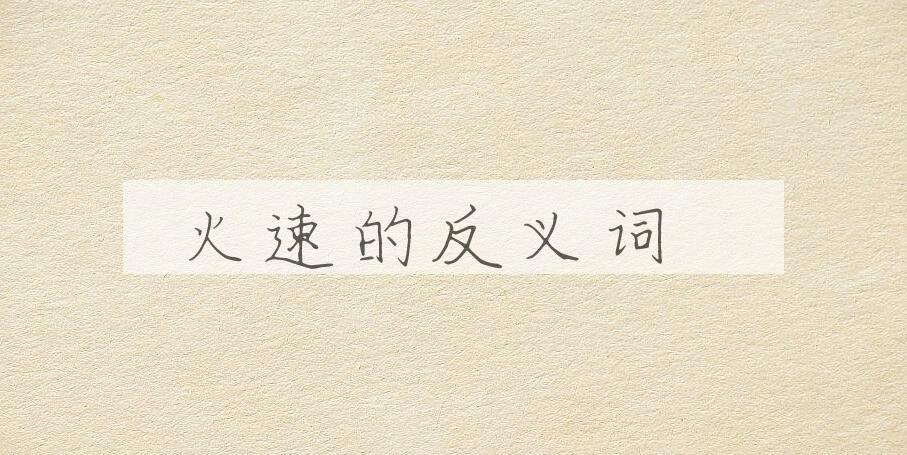 火速的反义词